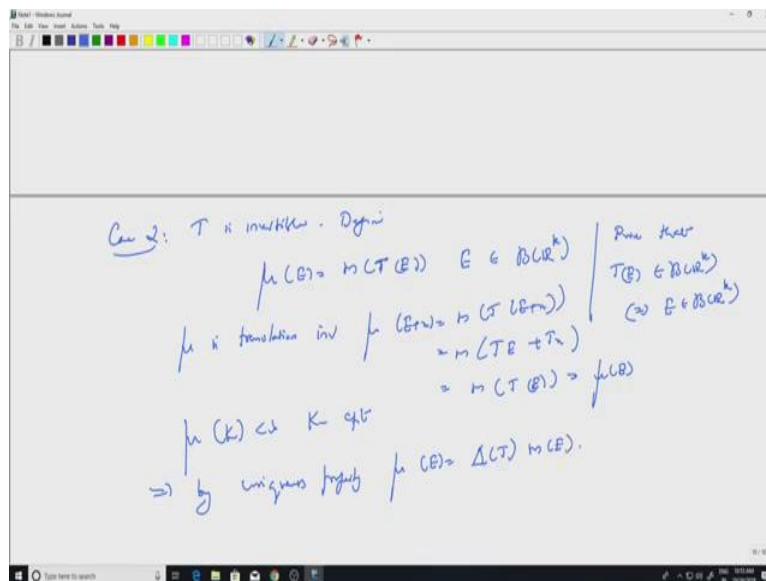 Note1 - Windows Journal
File Edit View Insert Actions Tools Help
Case 2: T is invertible. Define
μ(E) = m(T(E)) E ∈ B(ℝ^k)
Prove that
T(E) ∈ B(ℝ^k)
⇔ E ∈ B(ℝ^k)
μ is translation inv μ(E+x) = m(T(E+x))
= m(TE + Tx)
= m(T(E)) = μ(E)
μ(K) < ∞ K cpt
⇒ by uniqueness property μ(E) = Δ(T) m(E).
Type here to search
ENG